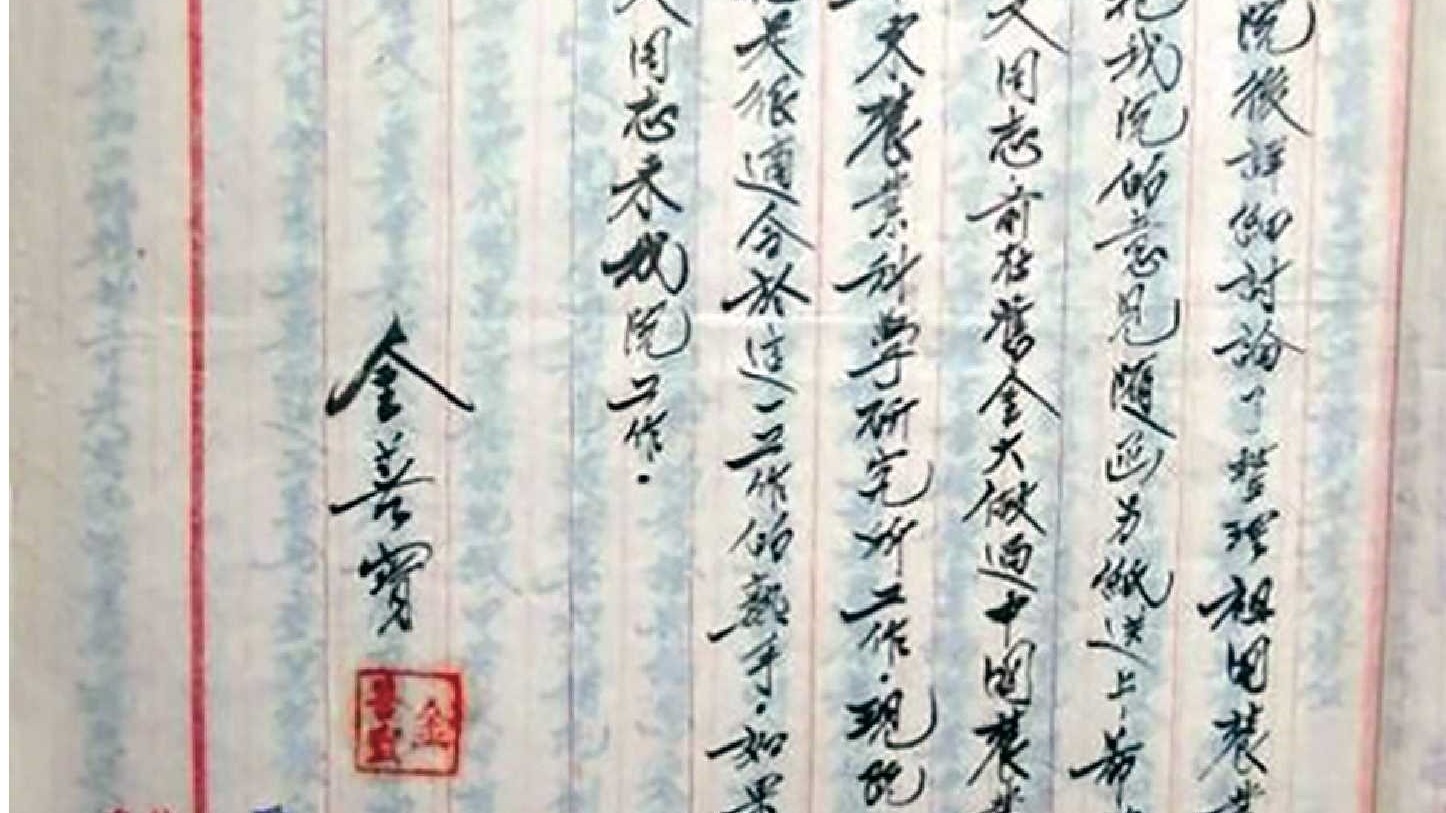 院後詳細討論了整理祖國農業
把我院的意見隨函另紙送上希
文同志前在舊金大做過中國農業
農業科學研究所工作。現說
是很適合於這一工作的熟手。如果
文同志來我院工作。
金善寶
金善寶